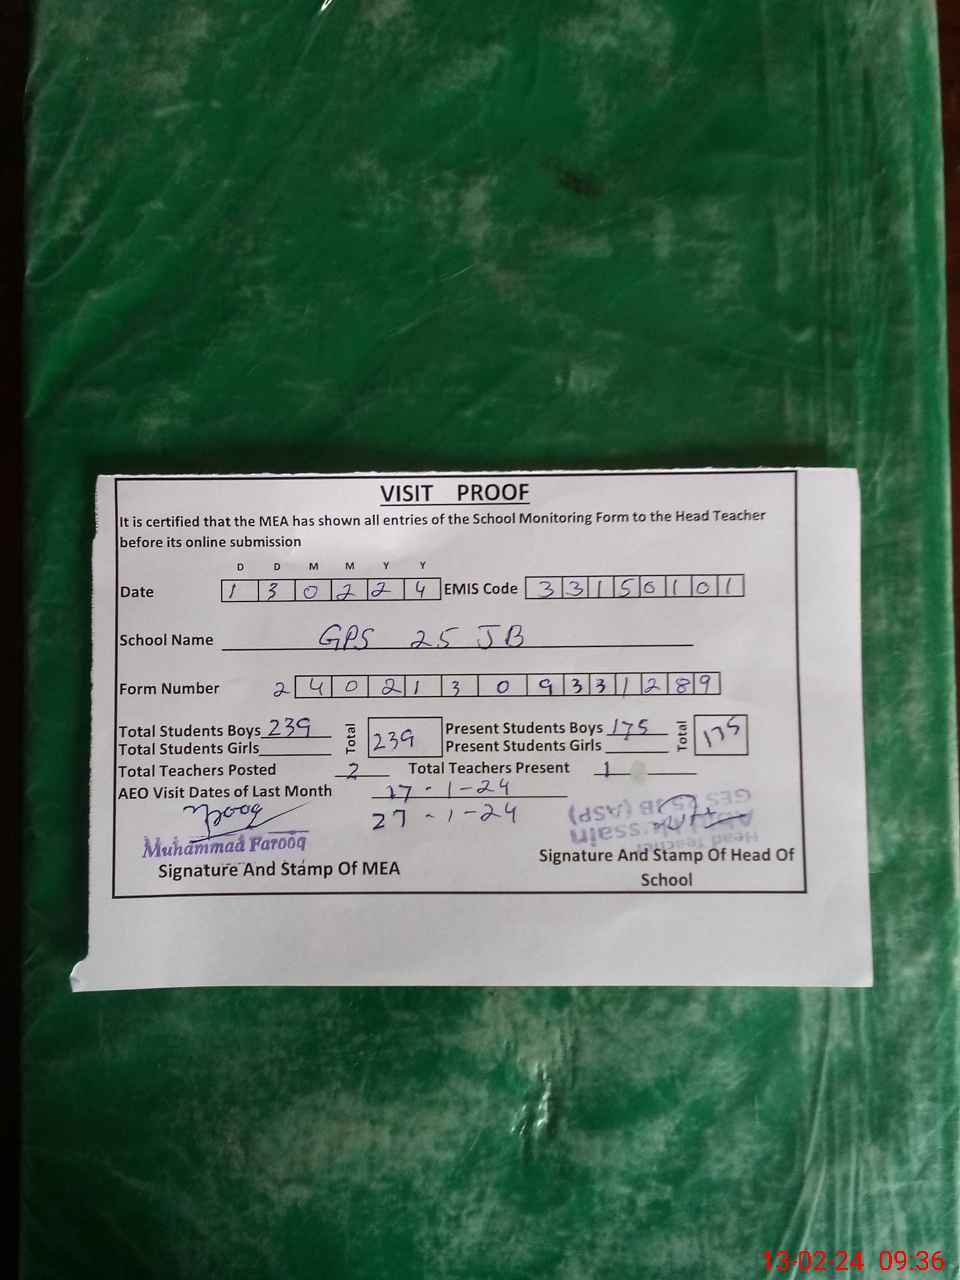 VISIT PROOF
It is certified that the MEA has shown all entries of the School Monitoring Form to the Head Teacher
before its online submission
D D M M Y Y
Date 1 3 0 2 2 4 EMIS Code 3 3 1 5 0 1 0 1
School Name GPS 25 JB
Form Number 2 4 0 2 1 3 0 9 3 3 1 2 8 9
Total Students Boys 239 Total 239 Present Students Boys 175 Total 175
Total Students Girls Present Students Girls
Total Teachers Posted 2 Total Teachers Present 1
AEO Visit Dates of Last Month 17-1-24
27-1-24
Muhammad Farooq
Signature And Stamp Of MEA
Head Teacher
GES 25 JB (ASP)
Signature And Stamp Of Head Of
School
13-02-24 09:36